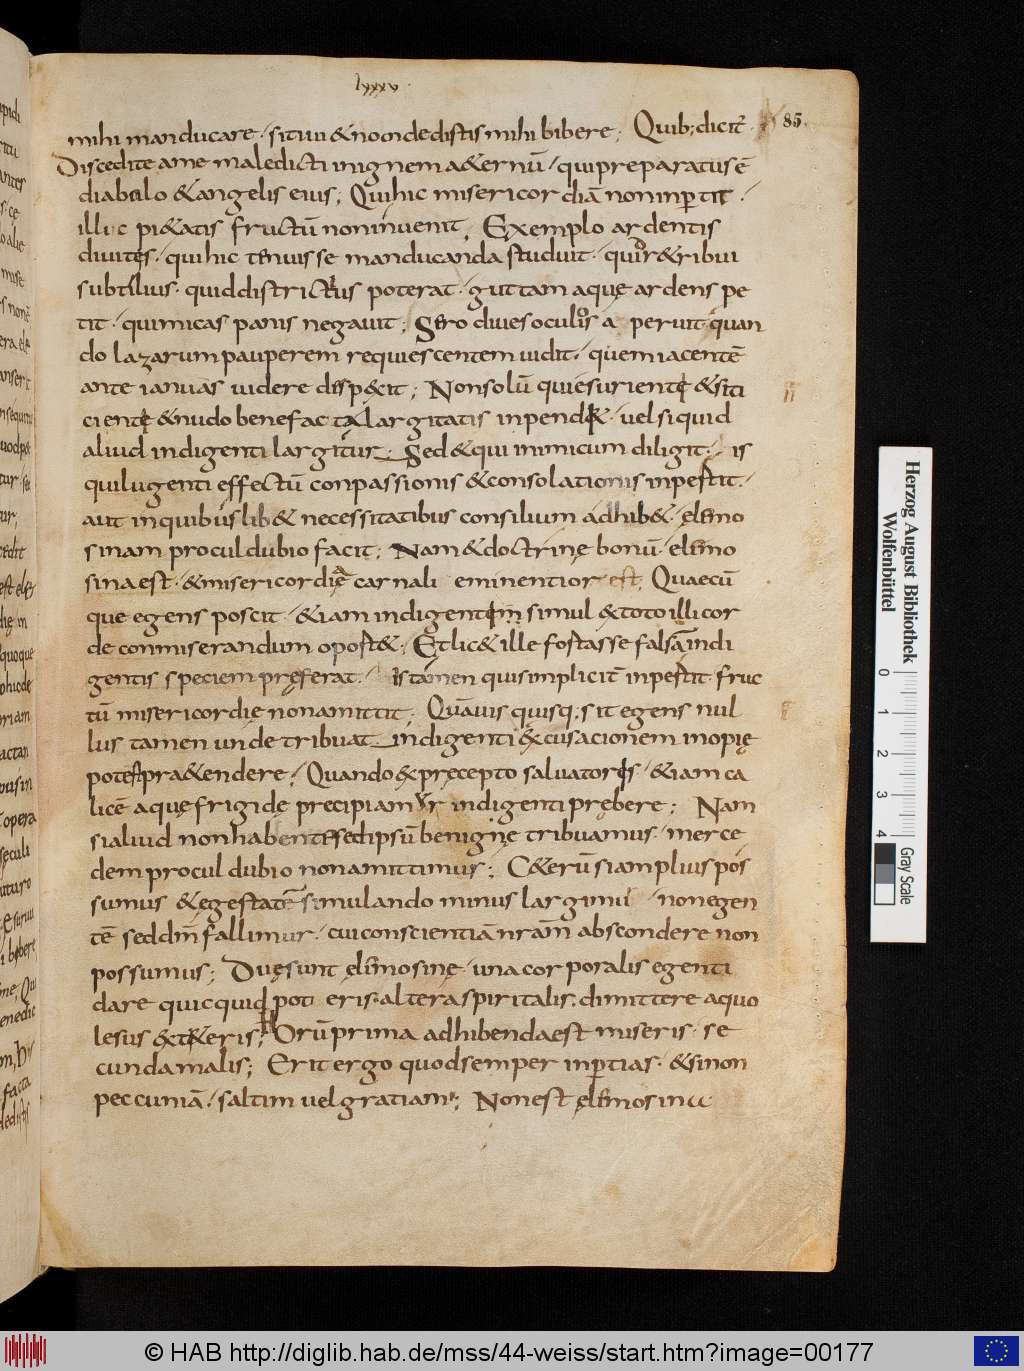 lxxxv
85.
mihi manducare · sitiui & non dedistis mihi bibere; Quib; dicit̄
Discedite a me maledicti in ignem a&ernū · qui preparatus ē
diabulo & angelis eius; Qui hic misericordiā non inpertit ·
illic pi&atis fructū non inuenit, Exemplo ardentis
diuites · qui hic tenuisse manducanda studuit ·
subtilius · quid districtius poterat · guttam aquę ardens pe
tit · qui micas panis negauit; Sero diues oculos aperuit quan
do lazarum pauperem requiescentem uidit · quem iacentē
ante ianuas uidere dispexit; Non solū qui esurienti & siti
cienti & nudo benefac largitatis inpend& · uel si quid
aliud indigenti largitur · Sed & qui inimicum diligit · is
qui lugenti effectū conpassionis & consolationis inpertit ·
aut in quibuslib& necessitatibus consilium adhib& · elimo
sinam procul dubio facit; Nam & doctrinę bonū · elimo
sina est · & misericordię carnali eminentior est, Quaecū
que egens poscit · & iam indigentem simul & toto illi cor
de conmiserandum oport&; Et lic& ille fortasse falsam indi
gentis speciem pręferat · Is tamen qui simplicit̄ inpertit fruc
tū misericordię non amittit; Quāuis quisq; sit egens nul
lus tamen unde tribuat indigenti excusacionem inopię
potest pra&endere; Quando & pręcepto saluatoris · & iam ca
licē aquę frigidę precipiamur indigenti prębere; Nam
si aliud non habentes id ipsū benigne tribuamus · merce
dem procul dubio non amittimus; C&erū si amplius pos
sumus & egestatē simulando minus largimur · non egen
tē sed dm̄ fallimur · cui conscientiā nram̄ abscondere non
possumus; Duę sunt elimosinę · una corporalis egenti
dare quicquid poteris · altera spiritalis · dimittere a quo
lesus exteteris; Horū prima adhibenda est miseris · se
cunda malis; Erit ergo quod semper inpertias · & si non
peccuniā · saltim uel gratiam; Non est elimosina
Herzog August Bibliothek
Wolfenbüttel
0 1 2 3 4
Gray Scale
© HAB http://diglib.hab.de/mss/44-weiss/start.htm?image=00177